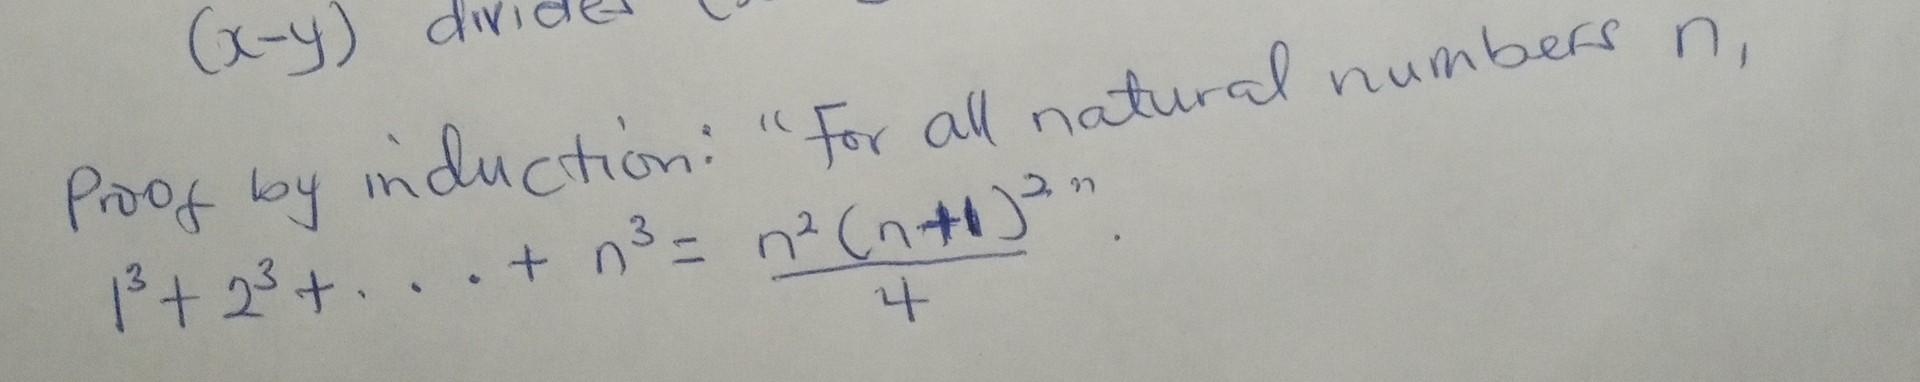 (x-y) divides
Proof by induction: "For all natural numbers n,
1³ + 2³ + . . . . + n³ = n²(n+1)²/4".